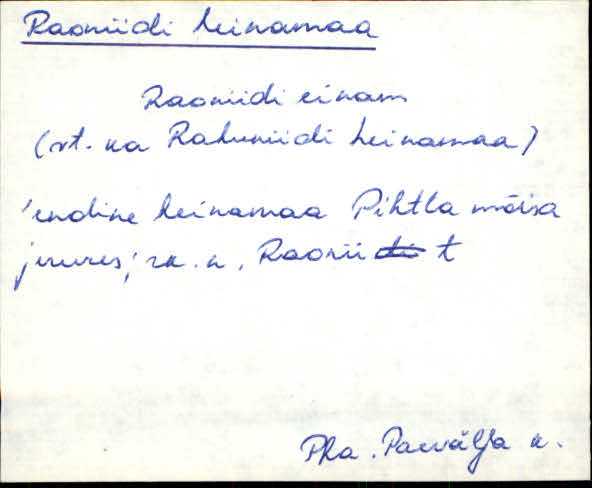 Raoniidi heinamaa
Raoniidi einam
(vt. ka Rahuniidi heinamaa)
'endine heinamaa Pihtla mõisa
juures; rk. n. Raonii t
Pha. Paevälja k.